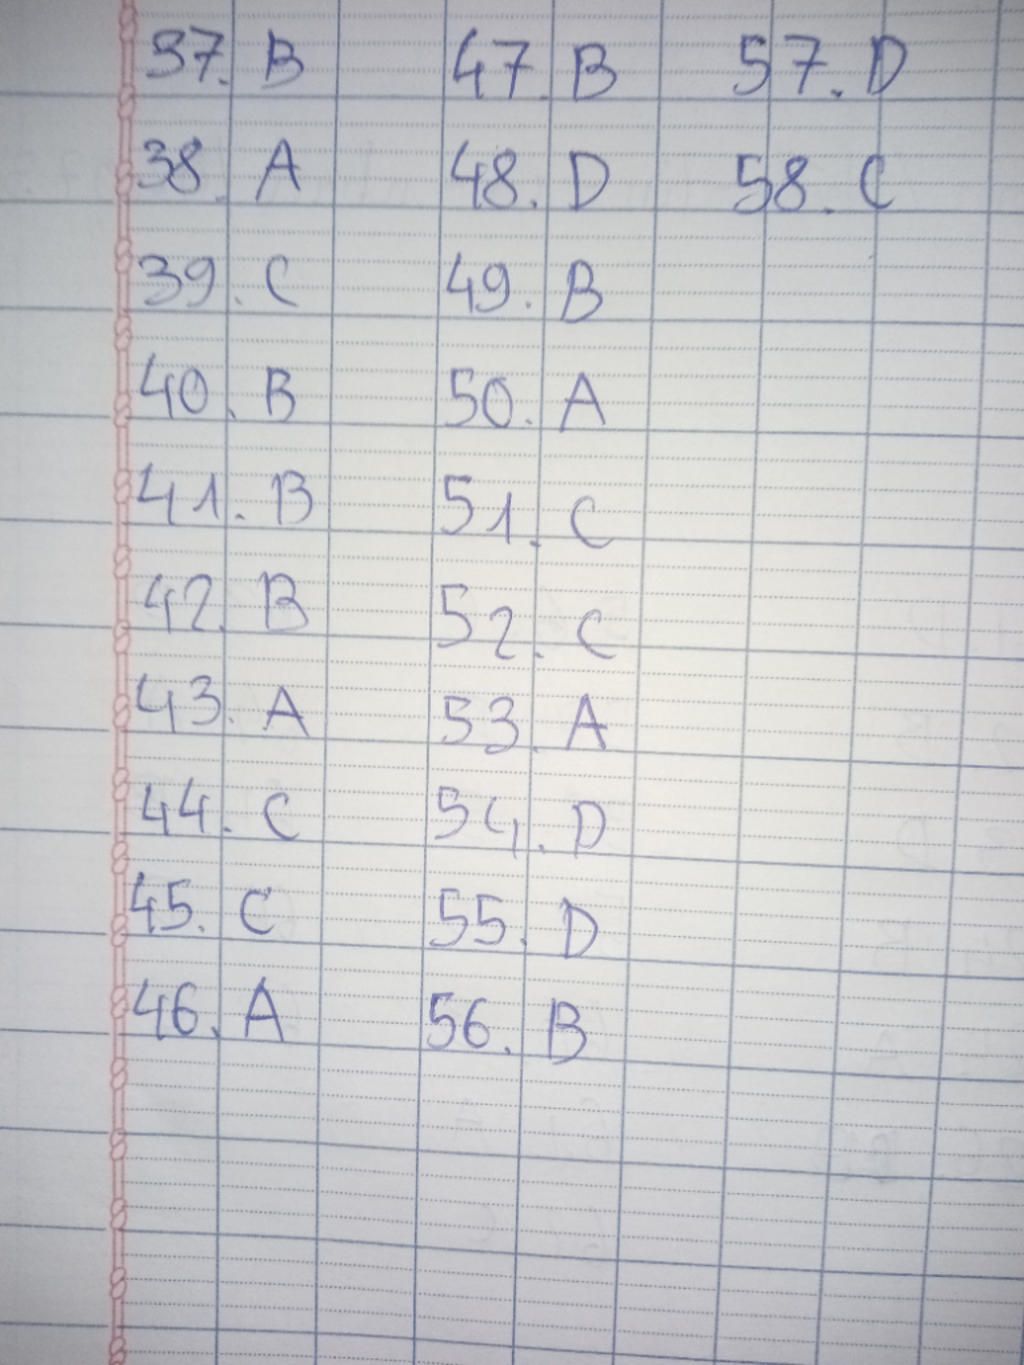 37. B
38. A
39. C
40. B
41. B
42. B
43. A
44. C
45. C
46. A
47. B
48. D
49. B
50. A
51. C
52. C
53. A
54. D
55. D
56. B
57. D
58. C